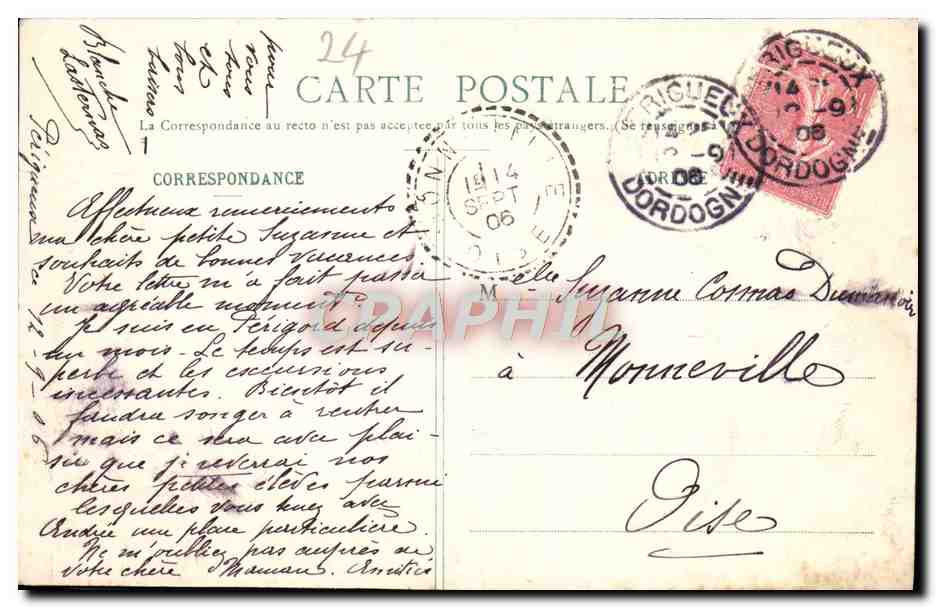 24
CARTE POSTALE
La Correspondance au recto n'est pas acceptée par tous les pays étrangers. (Se renseigner à la
CORRESPONDANCE
Périgueux ce 12-9-06
Affectueux remerciements
ma chère petite Suzanne et
souhaits de bonnes vacances
Votre lettre m'a fait passer
un agréable moment.
Je suis en Périgord depuis
un mois - Le temps est su-
perbe et les excursions
incessantes. Bientôt il
faudra songer à rentrer
mais ce sera avec plai-
sir que je reverrai nos
chères petites élèves parmi
lesquelles vous tenez avec
Andrée une place particulière
Ne m'oubliez pas auprès de
votre chère Maman. Amitiés
pour
vous
tous
et
bons
baisers
Blanche
MONNEVILLE
14
SEPT
06
OISE
PERIGUEUX
-9
06
DORDOGNE
PERIGUEUX
-9
06
DORDOGNE
Melle Suzanne Cosmas Dumanoir
à Monneville
Oise
CPAPHIL